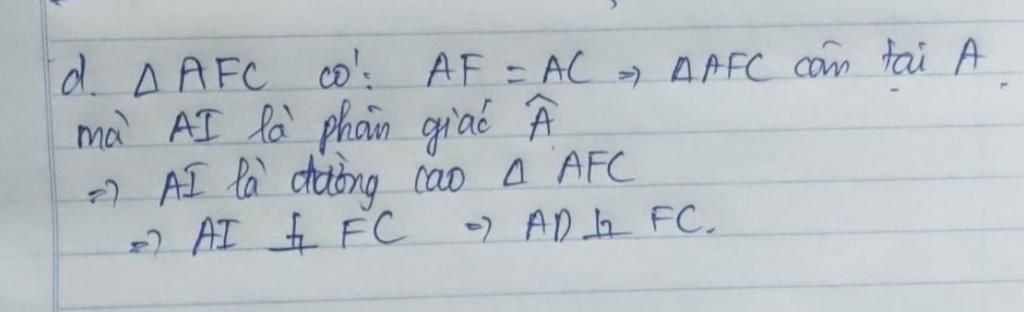 d. Δ AFC có: AF = AC => ΔAFC cân tại A.
mà AI là phân giác Â
=> AI là đường cao Δ AFC
=> AI ⊥ FC => AD ⊥ FC.